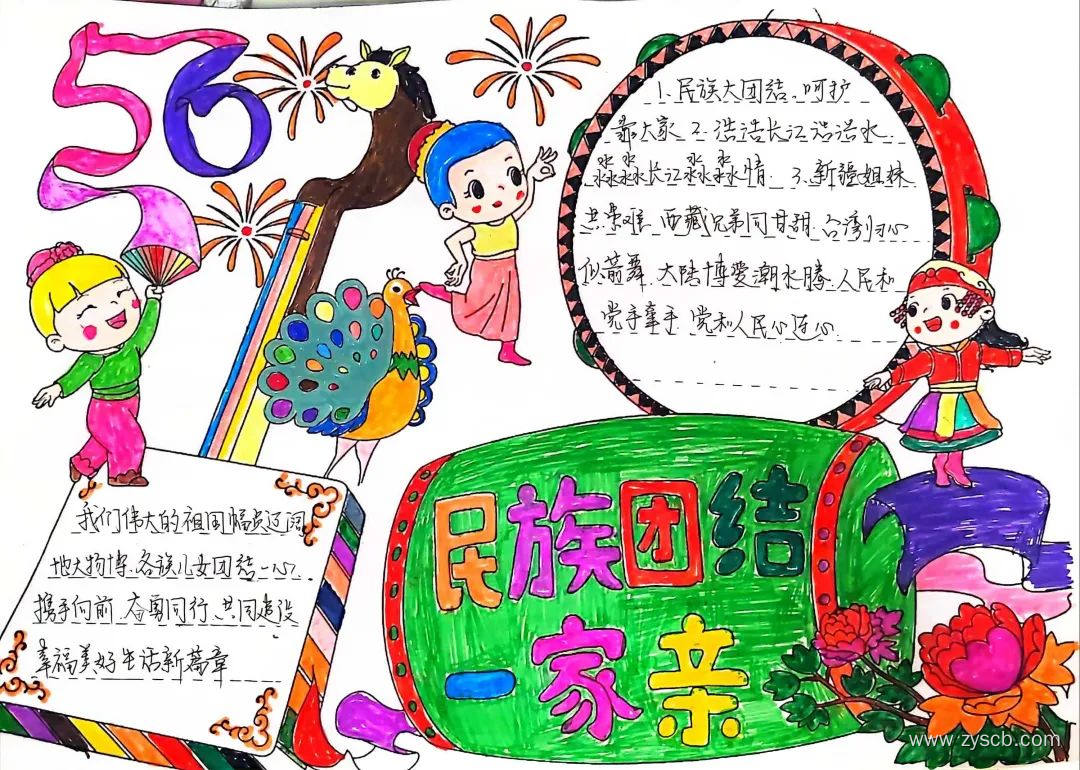 56
1.民族大团结、呵护
靠大家 2.浩浩长江浩浩水
淼淼长江淼淼情. 3.新疆姐妹
共患难 西藏兄弟同甘甜 台湾归心
似箭舞 大陆博爱潮水腾 人民和
党手牵手 党和人民心连心
我们伟大的祖国幅员辽阔
地大物博、各族儿女团结一心
携手向前 奋勇同行 共同建设
幸福美好生活新篇章
民族团结
一家亲
www.zyscb.com